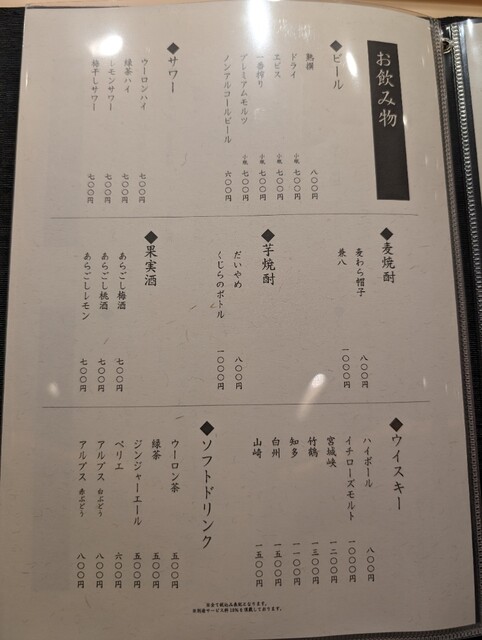 お飲み物
◆ビール
熟撰 八〇〇円
ドライ 小瓶 七〇〇円
ヱビス 小瓶 七〇〇円
一番搾り 小瓶 七〇〇円
プレミアムモルツ 小瓶 七〇〇円
ノンアルコールビール 六〇〇円
◆サワー
ウーロンハイ 七〇〇円
緑茶ハイ 七〇〇円
レモンサワー 七〇〇円
梅干しサワー 七〇〇円
◆麦焼酎
麦わら帽子 八〇〇円
兼八 一〇〇〇円
◆芋焼酎
だいやめ 八〇〇円
くじらのボトル 一〇〇〇円
◆果実酒
あらごし梅酒 七〇〇円
あらごし桃酒 七〇〇円
あらごしレモン 七〇〇円
◆ウイスキー
ハイボール 八〇〇円
イチローズモルト 一〇〇〇円
宮城峡 一二〇〇円
竹鶴 一三〇〇円
知多 一一〇〇円
白州 一五〇〇円
山崎 一五〇〇円
◆ソフトドリンク
ウーロン茶 五〇〇円
緑茶 五〇〇円
ジンジャーエール 五〇〇円
ペリエ 六〇〇円
アルプス 白ぶどう 八〇〇円
アルプス 赤ぶどう 八〇〇円
※全て税込み表記となります。
※別途サービス料10%を頂戴しております。